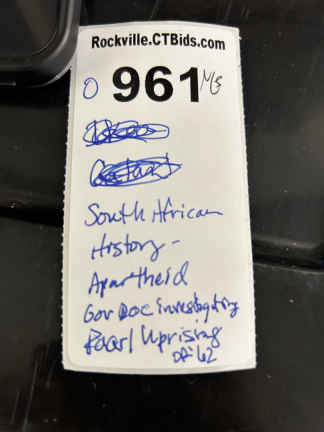 Rockville.CTBids.com
O 961 MG
South African
History -
Apartheid
Gov Doc investigating
Paarl Uprising